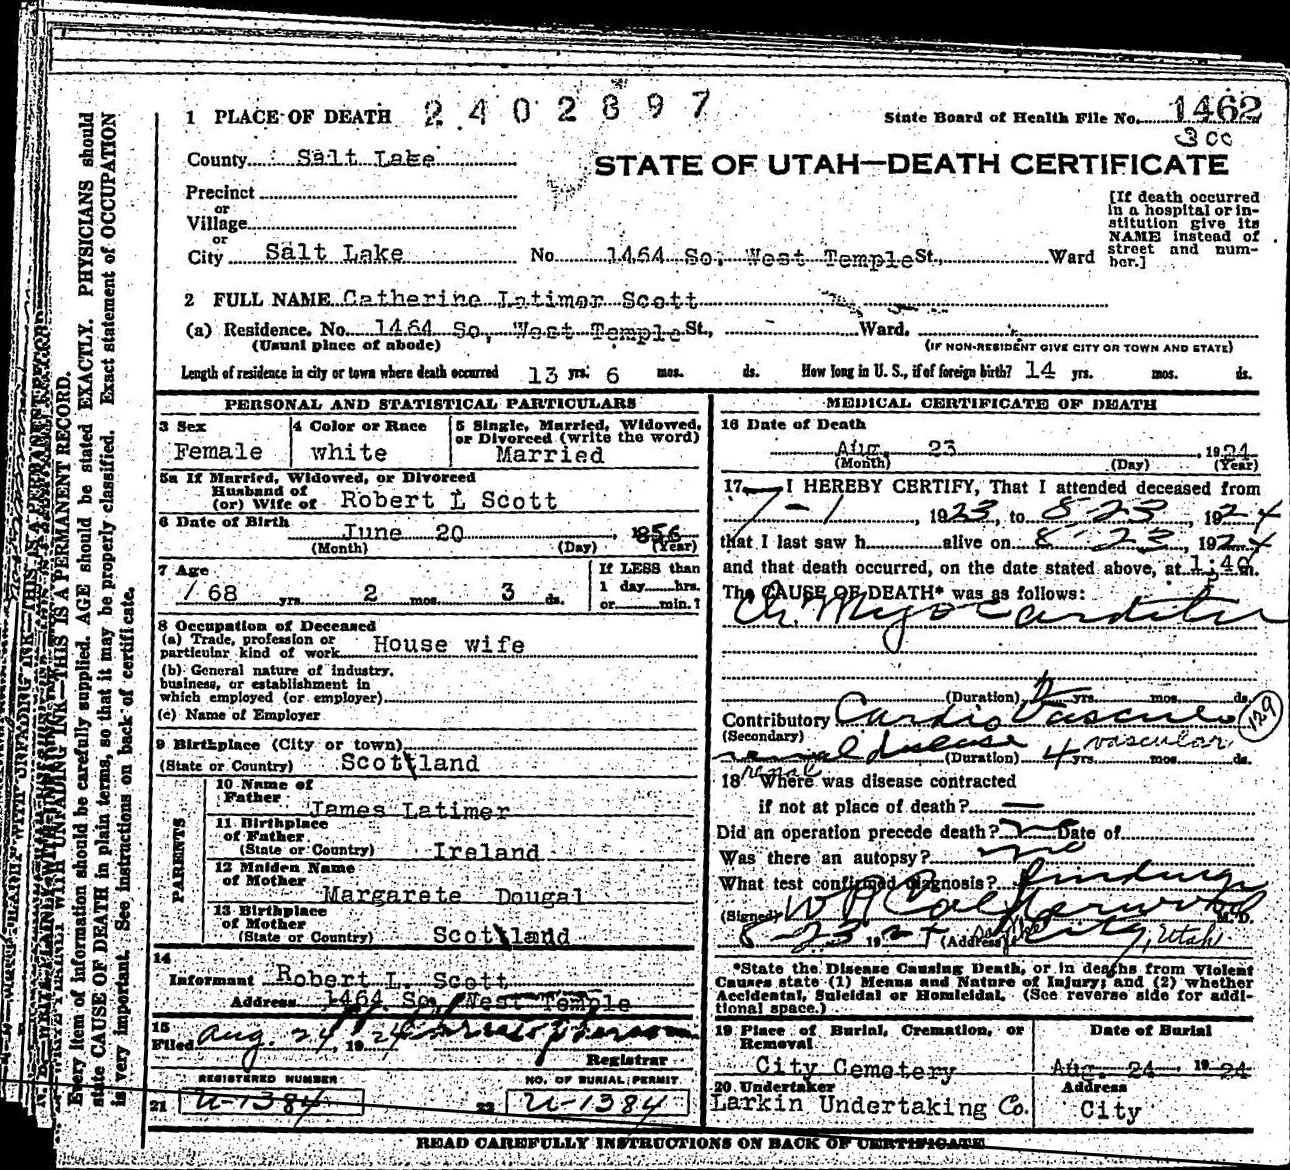 1 PLACE OF DEATH 2402897 State Board of Health File No. 1462
300
County Salt Lake STATE OF UTAH—DEATH CERTIFICATE
Precinct
or
Village
or
City Salt Lake No. 1464 So, West Temple St., Ward
[If death occurred
in a hospital or in-
stitution give its
NAME instead of
street and num-
ber.]
2 FULL NAME Catherine Latimer Scott
(a) Residence. No. 1464 So, West Temple St., Ward.
(Usual place of abode) (IF NON-RESIDENT GIVE CITY OR TOWN AND STATE)
Length of residence in city or town where death occurred 13 yrs. 6 mos. ds. How long in U. S., if of foreign birth? 14 yrs. mos. ds.
PERSONAL AND STATISTICAL PARTICULARS
3 Sex
Female
4 Color or Race
white
5 Single, Married, Widowed,
or Divorced (write the word)
Married
5a If Married, Widowed, or Divorced
Husband of
(or) Wife of Robert L Scott
6 Date of Birth
June 20, 1856
(Month) (Day) (Year)
7 Age
68 yrs. 2 mos. 3 ds.
If LESS than
1 day hrs.
or min.?
8 Occupation of Deceased
(a) Trade, profession or
particular kind of work House wife
(b) General nature of industry,
business, or establishment in
which employed (or employer)
(c) Name of Employer
9 Birthplace (City or town)
(State or Country) Scotland
PARENTS
10 Name of
Father James Latimer
11 Birthplace
of Father
(State or Country) Ireland
12 Maiden Name
of Mother
Margarete Dougal
13 Birthplace
of Mother
(State or Country) Scotland
14
Informant Robert L. Scott
Address 1464 So, West Temple
15
Filed Aug. 24, 1924
Registrar
REGISTERED NUMBER NO. OF BURIAL PERMIT
21 U-1384 22 U-1384
MEDICAL CERTIFICATE OF DEATH
16 Date of Death
Aug. 23, 1924
(Month) (Day) (Year)
17 I HEREBY CERTIFY, That I attended deceased from
7-1, 1923, to 8-23, 1924
that I last saw h alive on 8-23, 1924
and that death occurred, on the date stated above, at 1;40 m.
The CAUSE OF DEATH* was as follows:
Ch. Myocarditis
(Duration) yrs. mos. ds.
Contributory Cardio Vascular 129
(Secondary)
renal disease (Duration) 4 yrs. mos. ds.
vascular
renal
18 Where was disease contracted
if not at place of death? —
Did an operation precede death? no Date of
Was there an autopsy? no
What test confirmed diagnosis? findings
(Signed) M.D.
8-23 1924 (Address) City, Utah
*State the Disease Causing Death, or in deaths from Violent
Causes state (1) Means and Nature of Injury; and (2) whether
Accidental, Suicidal or Homicidal. (See reverse side for addi-
tional space.)
19 Place of Burial, Cremation, or
Removal
City Cemetery
Date of Burial
Aug. 24 1924
20 Undertaker
Larkin Undertaking Co.
Address
City
READ CAREFULLY INSTRUCTIONS ON BACK OF CERTIFICATE
WITH UNFADING INK—THIS IS A PERMANENT RECORD.
Every item of information should be carefully supplied. AGE should be stated EXACTLY. PHYSICIANS should
state CAUSE OF DEATH in plain terms, so that it may be properly classified. Exact statement of OCCUPATION
is very important. See instructions on back of certificate.